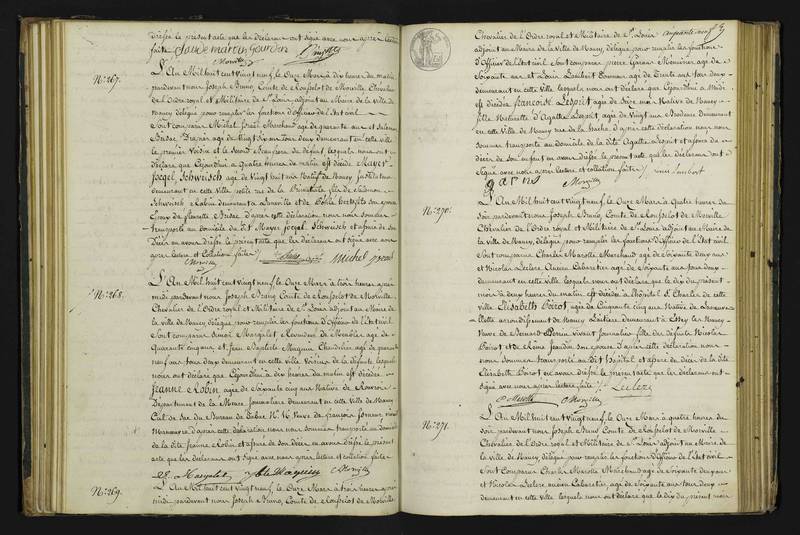 dressé le présent acte que les déclarans ont signé avec nous après lecture
faite
N.º 267.
L'An Mil huit cent vingt neuf, le Onze Mars à dix heures du matin
pardevant nous Joseph Bruno, Comte de Rousselot de Morville, Chevalier
de l'Ordre royal et Militaire de S.t Louis, adjoint au Maire de la Ville de
Nancy, délégué pour remplir les fonctions d'Officier de l'état civil
Sont comparus Michel Israël Marchand agé de quarante ans et Salomon
agé de vingt six ans tous deux demeurant en cette ville
le premier Voisin et le Second Beaufrere du défunt, lesquels nous ont
déclaré que Cejourdhui à quatre heures du matin est décédé Mayer
Joegel Schweisch agé de vingt huit ans Natif de Nancy
demeurant en cette Ville fils de Salomon
Schweisch Rabin demeurant à Luneville et de
Epoux de d'après cette déclaration nous nous sommes
transporté au domicile du dit Mayer Joegel Schweisch et assuré de son
Décès en avons dressé le présent acte que les déclarans ont Signé avec nous
après lecture et Collation faite
Morville Michel Israel
N.º 268.
L'An Mil huit cent vingt neuf le Onze Mars à trois heures après
midi pardevant nous Joseph Bruno Comte de Rousselot de Morville,
Chevalier de l'Ordre royal et Militaire de S.t Louis adjoint au Maire de
la Ville de Nancy, délégué pour remplir les fonctions d'Officier de l'état civil
Sont comparus Margelot Revendeur de Meubles agé de
Quarante cinq ans et Jean Baptiste Chaudelier agé de
neuf ans tous deux demeurant en cette ville, Voisins de la défunte lesquels
nous ont déclaré que Cejourdhui à dix heures du matin est décédée
Jeanne Robin agée de Soixante cinq ans Native de
Département de la Meuse Journaliere demeurant en cette Ville de Nancy
Cul de Sac du Bureau de Tabac N.º 16 Veuve de François
d'après cette déclaration nous nous sommes transporté au domicile
de la dite Jeanne Robin et assuré de son Décès, en avons dressé le présent
acte que les déclarans ont Signé avec nous après lecture et Collation faite
Morville
N.º 269.
L'An Mil huit cent vingt neuf, le Onze Mars à trois heures après
midi pardevant nous Joseph Bruno, Comte de Rousselot de Morville,
Chevalier de l'Ordre royal et Militaire de S.t Louis
adjoint au Maire de la Ville de Nancy, délégué pour remplir les fonctions
d'Officier de l'état civil Sont comparus Pierre agé de
Soixante ans et Louis agé de Trente ans tous deux
demeurant en cette ville, lesquels nous ont déclaré que Cejourdhui à Midi
est décédée Françoise Lesprit agée de Native de Nancy
fille Naturelle d'Agathe Lesprit, agée de Vingt ans Brodeuse demeurant
en cette Ville de Nancy rue de la d'après cette déclaration nous nous
sommes transporté au domicile de la dite Agathe Lesprit et assuré du
décès de Son enfant en avons dressé le présent acte que les déclarans ont
Signé avec nous après lecture et collation faite
Morville
N.º 270.
L'An Mil huit cent vingt neuf, le Onze Mars à quatre heures du
soir pardevant nous Joseph Bruno Comte de Rousselot de Morville
Chevalier de l'Ordre royal et Militaire de S.t Louis adjoint au Maire de
la Ville de Nancy, délégué pour remplir les fonctions d'Officier de l'état civil
Sont comparus Charles Marotte Marchand agé de Soixante deux ans
et Nicolas Leclere Ancien Cabaretier agé de Soixante ans tous deux
demeurant en cette ville, lesquels nous ont déclaré que le dix du présent
mois à deux heures du matin est décédée à l'hôpital S.t Charles de cette
ville Elisabeth Poirot, agée de Cinquante cinq ans Native de
arrondissement de Nancy demeurant à Essey les Nancy
Veuve de Bernard vivant Journalier, fille des défunts Nicolas
Poirot et de son épouse d'après cette déclaration nous
nous sommes transporté au dit hôpital et assuré du décès de la dite
Elisabeth Poirot en avons dressé le présent acte que les déclarans ont
Signé avec nous après lecture faite
Leclere
C. Marotte Morville
N.º 271.
L'An Mil huit cent vingt neuf, le Onze Mars à quatre heures du
soir pardevant nous Joseph Bruno Comte de Rousselot de Morville
Chevalier de l'Ordre royal et Militaire de S.t Louis adjoint au Maire de
la Ville de Nancy, délégué pour remplir les fonctions d'Officier de l'état civil
Sont Comparus Charles Marotte Marchand agé de Soixante deux ans
et Nicolas Leclere ancien Cabaretier, agé de Soixante ans tous deux
demeurant en cette ville lesquels nous ont déclaré que le dix du présent mois